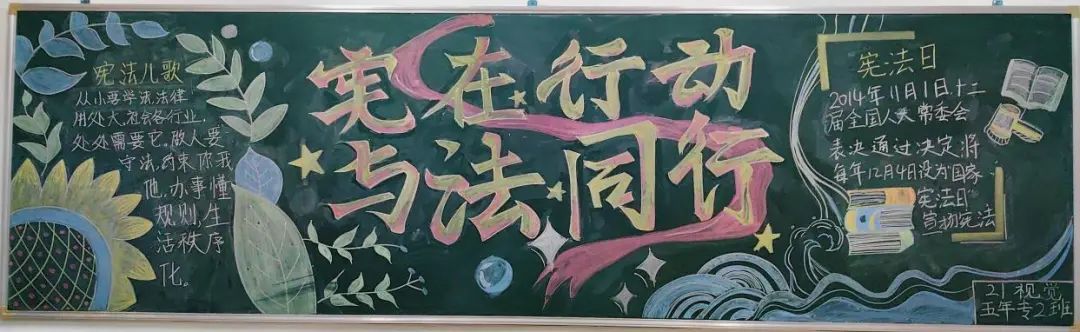 宪法儿歌
从小要学法,法律
用处大,社会各行业,
处处需要它。做人要
守法,约束你我
他,办事懂
规则,生
活秩序
化。
宪在行动
与法同行
宪法日
2014年11月1日十二
届全国人大常委会
表决通过决定将
每年12月4日设为国家
宪法日
宣扬宪法
21视觉
五年专2班